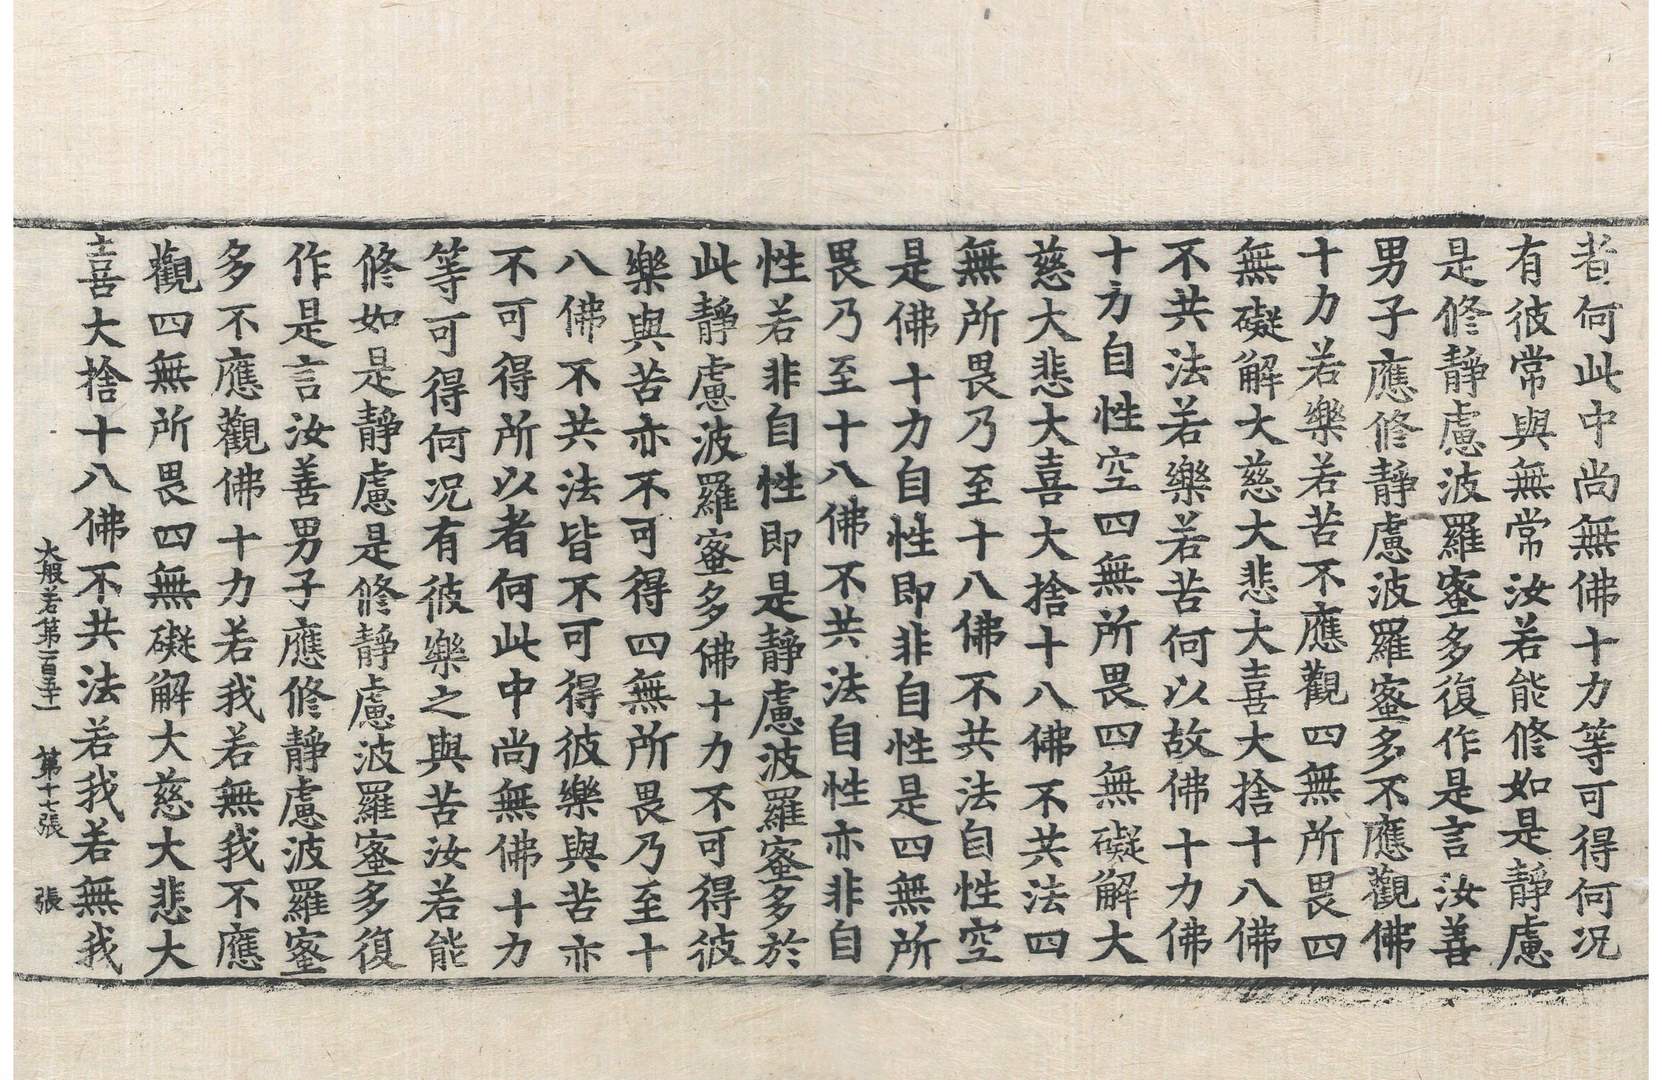 者何此中尚無佛十力等可得何况
有彼常與無常汝若能修如是靜慮
是修靜慮波羅蜜多復作是言汝善
男子應修靜慮波羅蜜多不應觀佛
十力若樂若苦不應觀四無所畏四
無礙解大慈大悲大喜大捨十八佛
不共法若樂若苦何以故佛十力佛
十力自性空四無所畏四無礙解大
慈大悲大喜大捨十八佛不共法四
無所畏乃至十八佛不共法自性空
是佛十力自性即非自性是四無所
畏乃至十八佛不共法自性亦非自
性若非自性即是靜慮波羅蜜多於
此靜慮波羅蜜多佛十力不可得彼
樂與苦亦不可得四無所畏乃至十
八佛不共法皆不可得彼樂與苦亦
不可得所以者何此中尚無佛十力
等可得何况有彼樂之與苦汝若能
修如是靜慮是修靜慮波羅蜜多復
作是言汝善男子應修靜慮波羅蜜
多不應觀佛十力若我若無我不應
觀四無所畏四無礙解大慈大悲大
喜大捨十八佛不共法若我若無我
大般若第一百五十一 第十七張 張